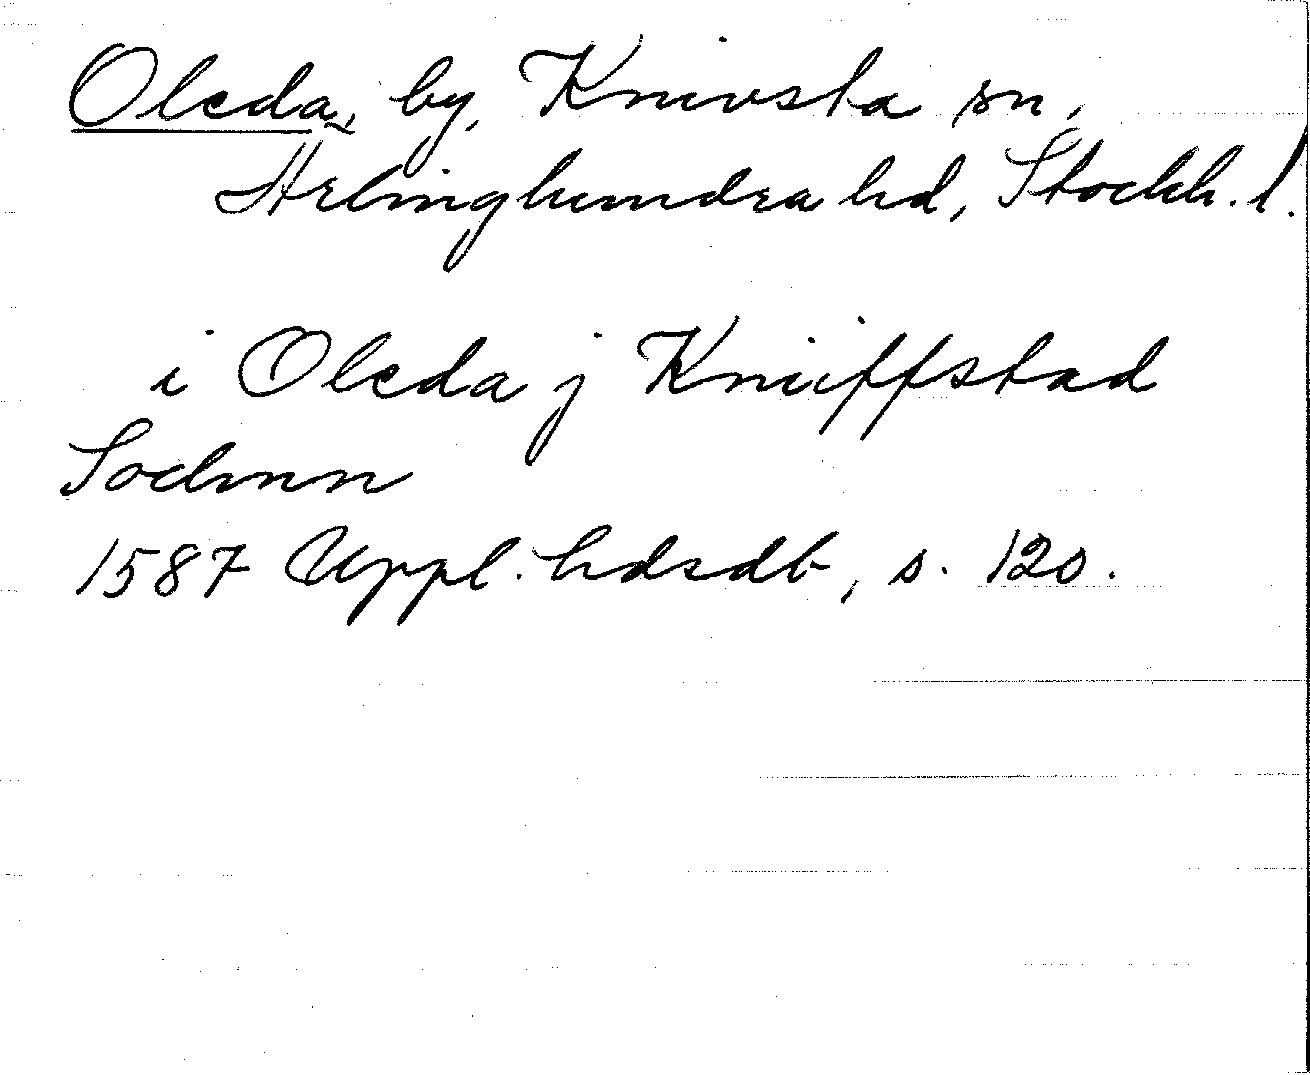 Oleda, by, Knivsta sn,
Ærlinghundra hd, Stockh. l.
i Oleda j Kniiffstad
Sochnn
1587 Uppl. hdsdb, s. 120.